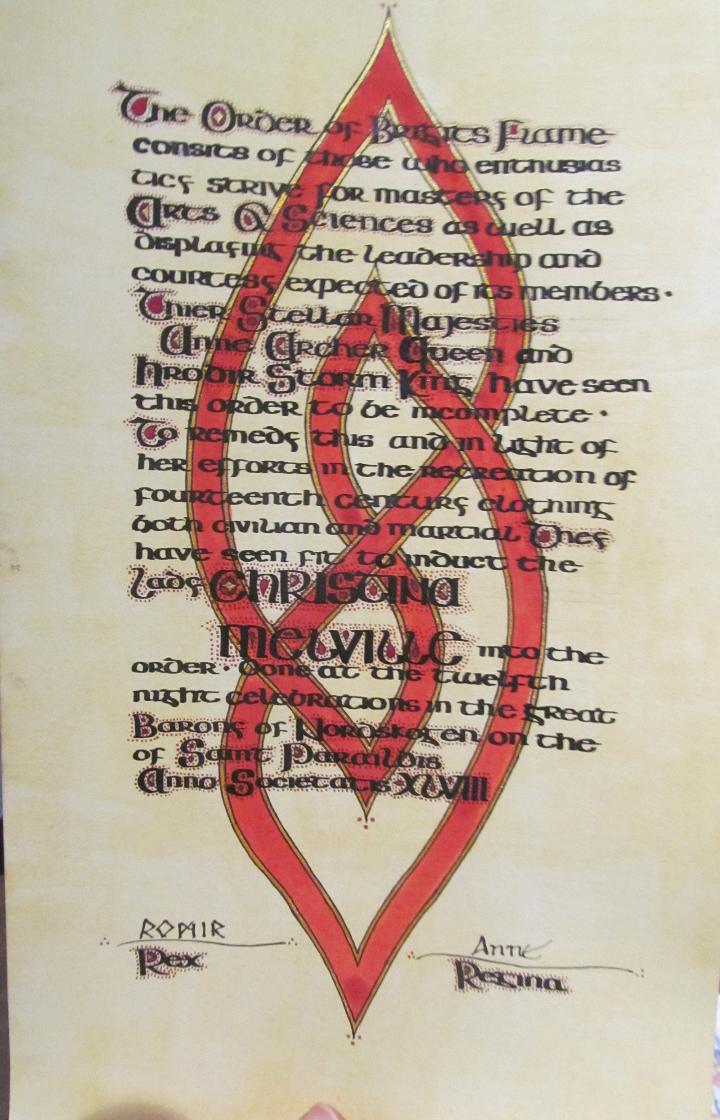 The Order of Brigits Flame
consits of those who enthusias
ticy strive for mastery of the
Arts & Sciences as well as
displaying the leadership and
courtesy expected of its members.
Thier Stellar Majesties
Anne Archer Queen and
hrodir Storm King have seen
this order to be incomplete.
To remedy this and in light of
her efforts in the recreation of
fourteenth century clothing
both civilian and martial They
have seen fit to induct the
lady Christina
Melville into the
order. Done at the twelfth
night celebrations in the great
Barony of Nordskogen on the
of Saint Paraildis
Anno Societatis XLVIII
Anne
Rex
Regina